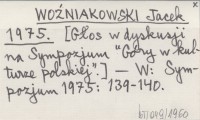 WOŹNIAKOWSKI Jacek
1975. [Głos w dyskusji
na Sympozjum "Góry w kul-
turze polskiej".] — W: Sym-
pozjum 1975: 139-140.